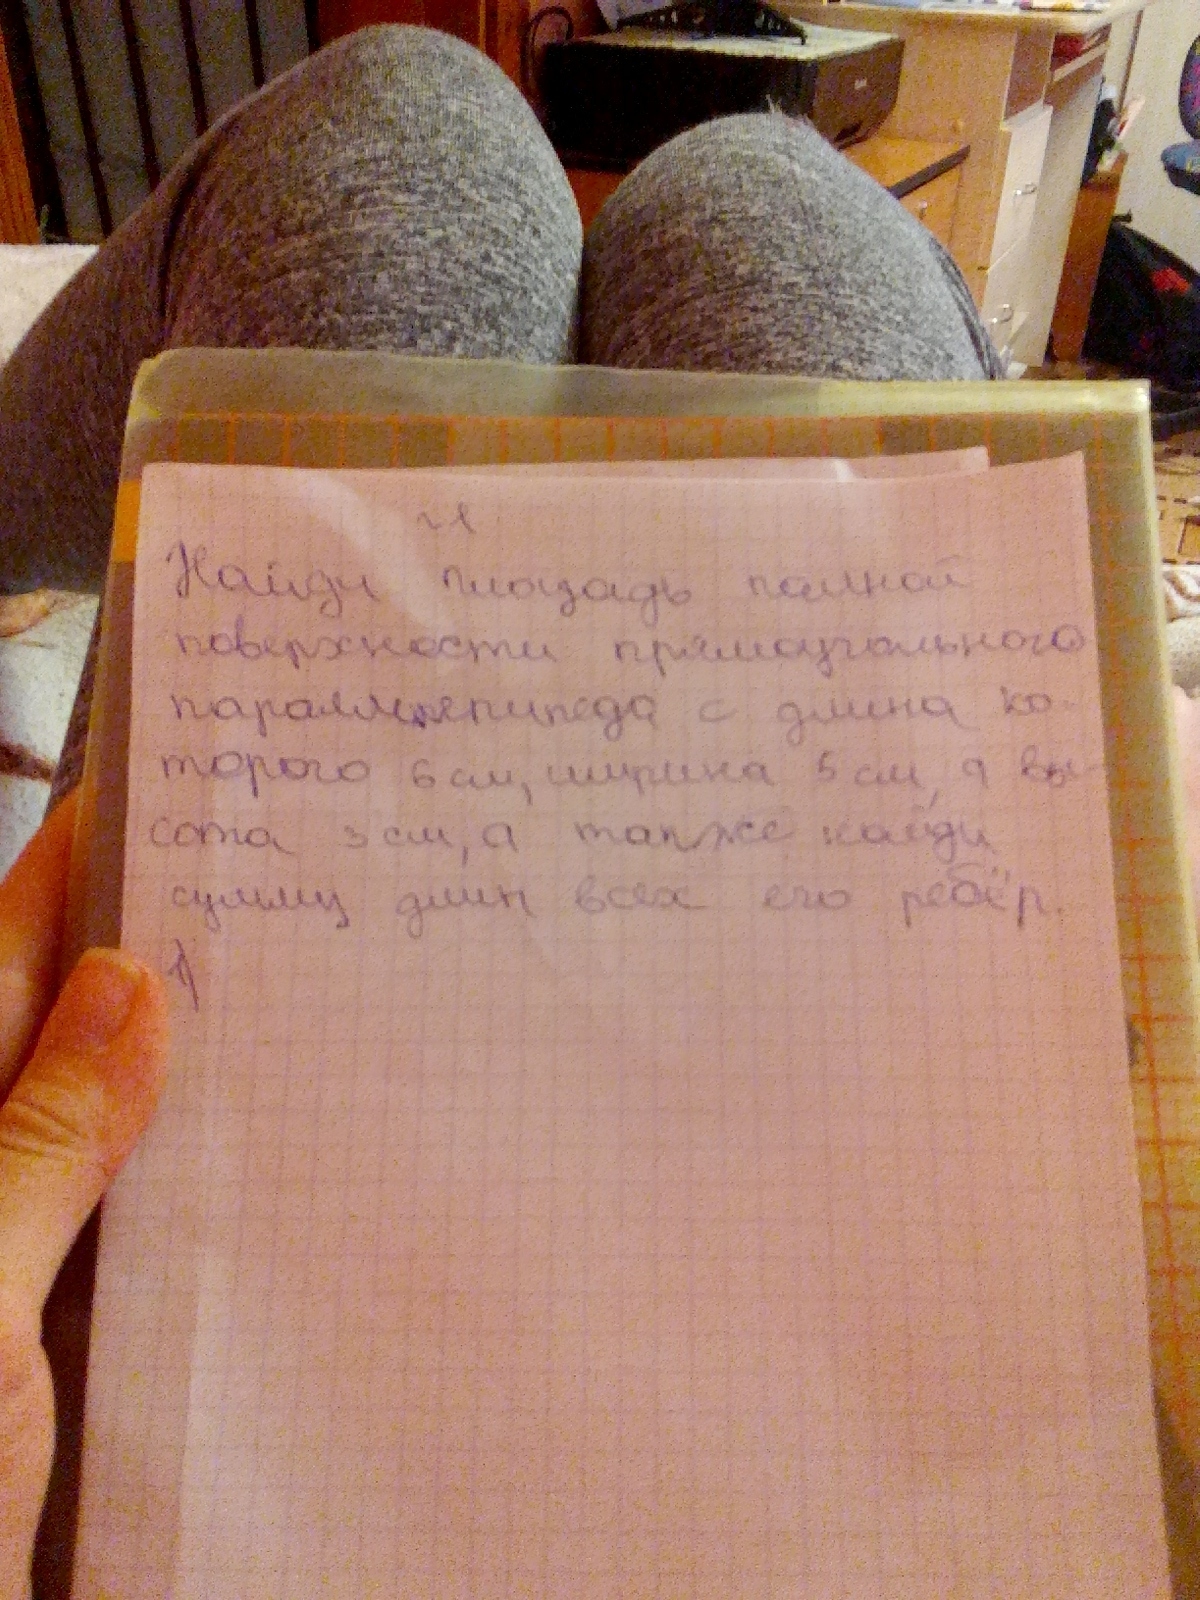 №1
Найди площадь полной
поверхности прямоугольного
параллелепипеда с длина ко-
торого 6 см, ширина 5 см, а вы-
сота 3 см, а также найди
сумму длин всех его рёбер.
1)